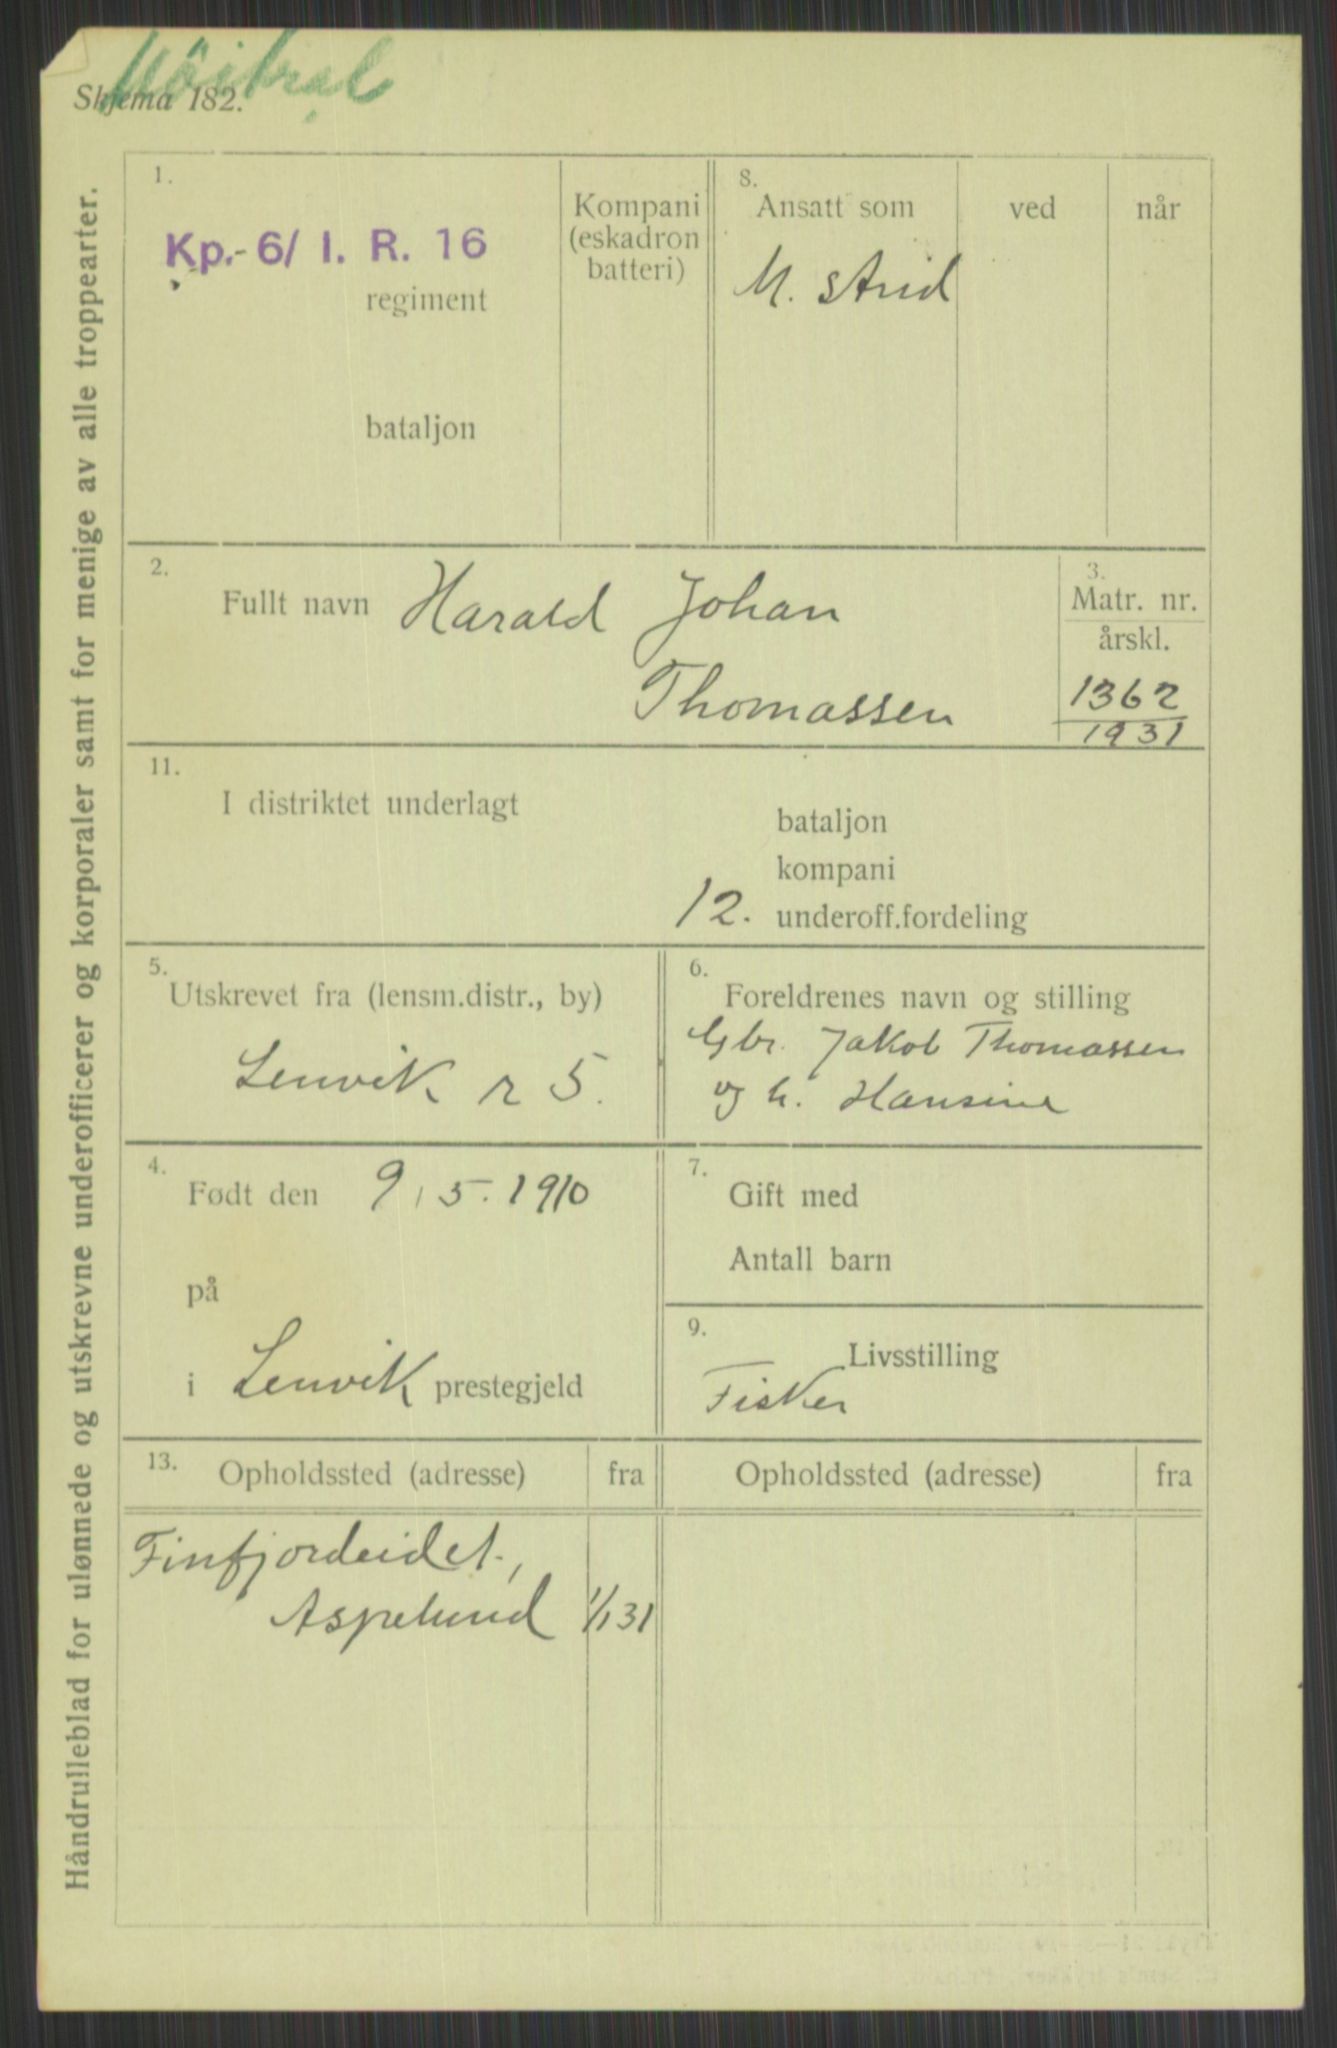 Skjema 182.
Håndrulleblad for ulønnede og utskrevne underofficerer og korporaler samt for menige av alle troppearter.
1.
Kp. 6/ I. R. 16
regiment
bataljon
Kompani
(eskadron
batteri)
8.
Ansatt som
ved
når
2.
Fullt navn Harald Johan
Thomassen
3.
Matr. nr.
årskl.
1362
1931
11.
I distriktet underlagt
bataljon
kompani
12. underoff.fordeling
5.
Utskrevet fra (lensm.distr., by)
Lenvik r 5.
6.
Foreldrenes navn og stilling
Gbr. Jakob Thomassen
og h. Hansine
4.
Født den 9.5.1910
på
i Lenvik prestegjeld
7.
Gift med
Antall barn
9.
Livsstilling
Fisker
13.
Opholdssted (adresse) fra
Opholdssted (adresse) fra
Finfjordeidet,
Aspelund 1/1 31